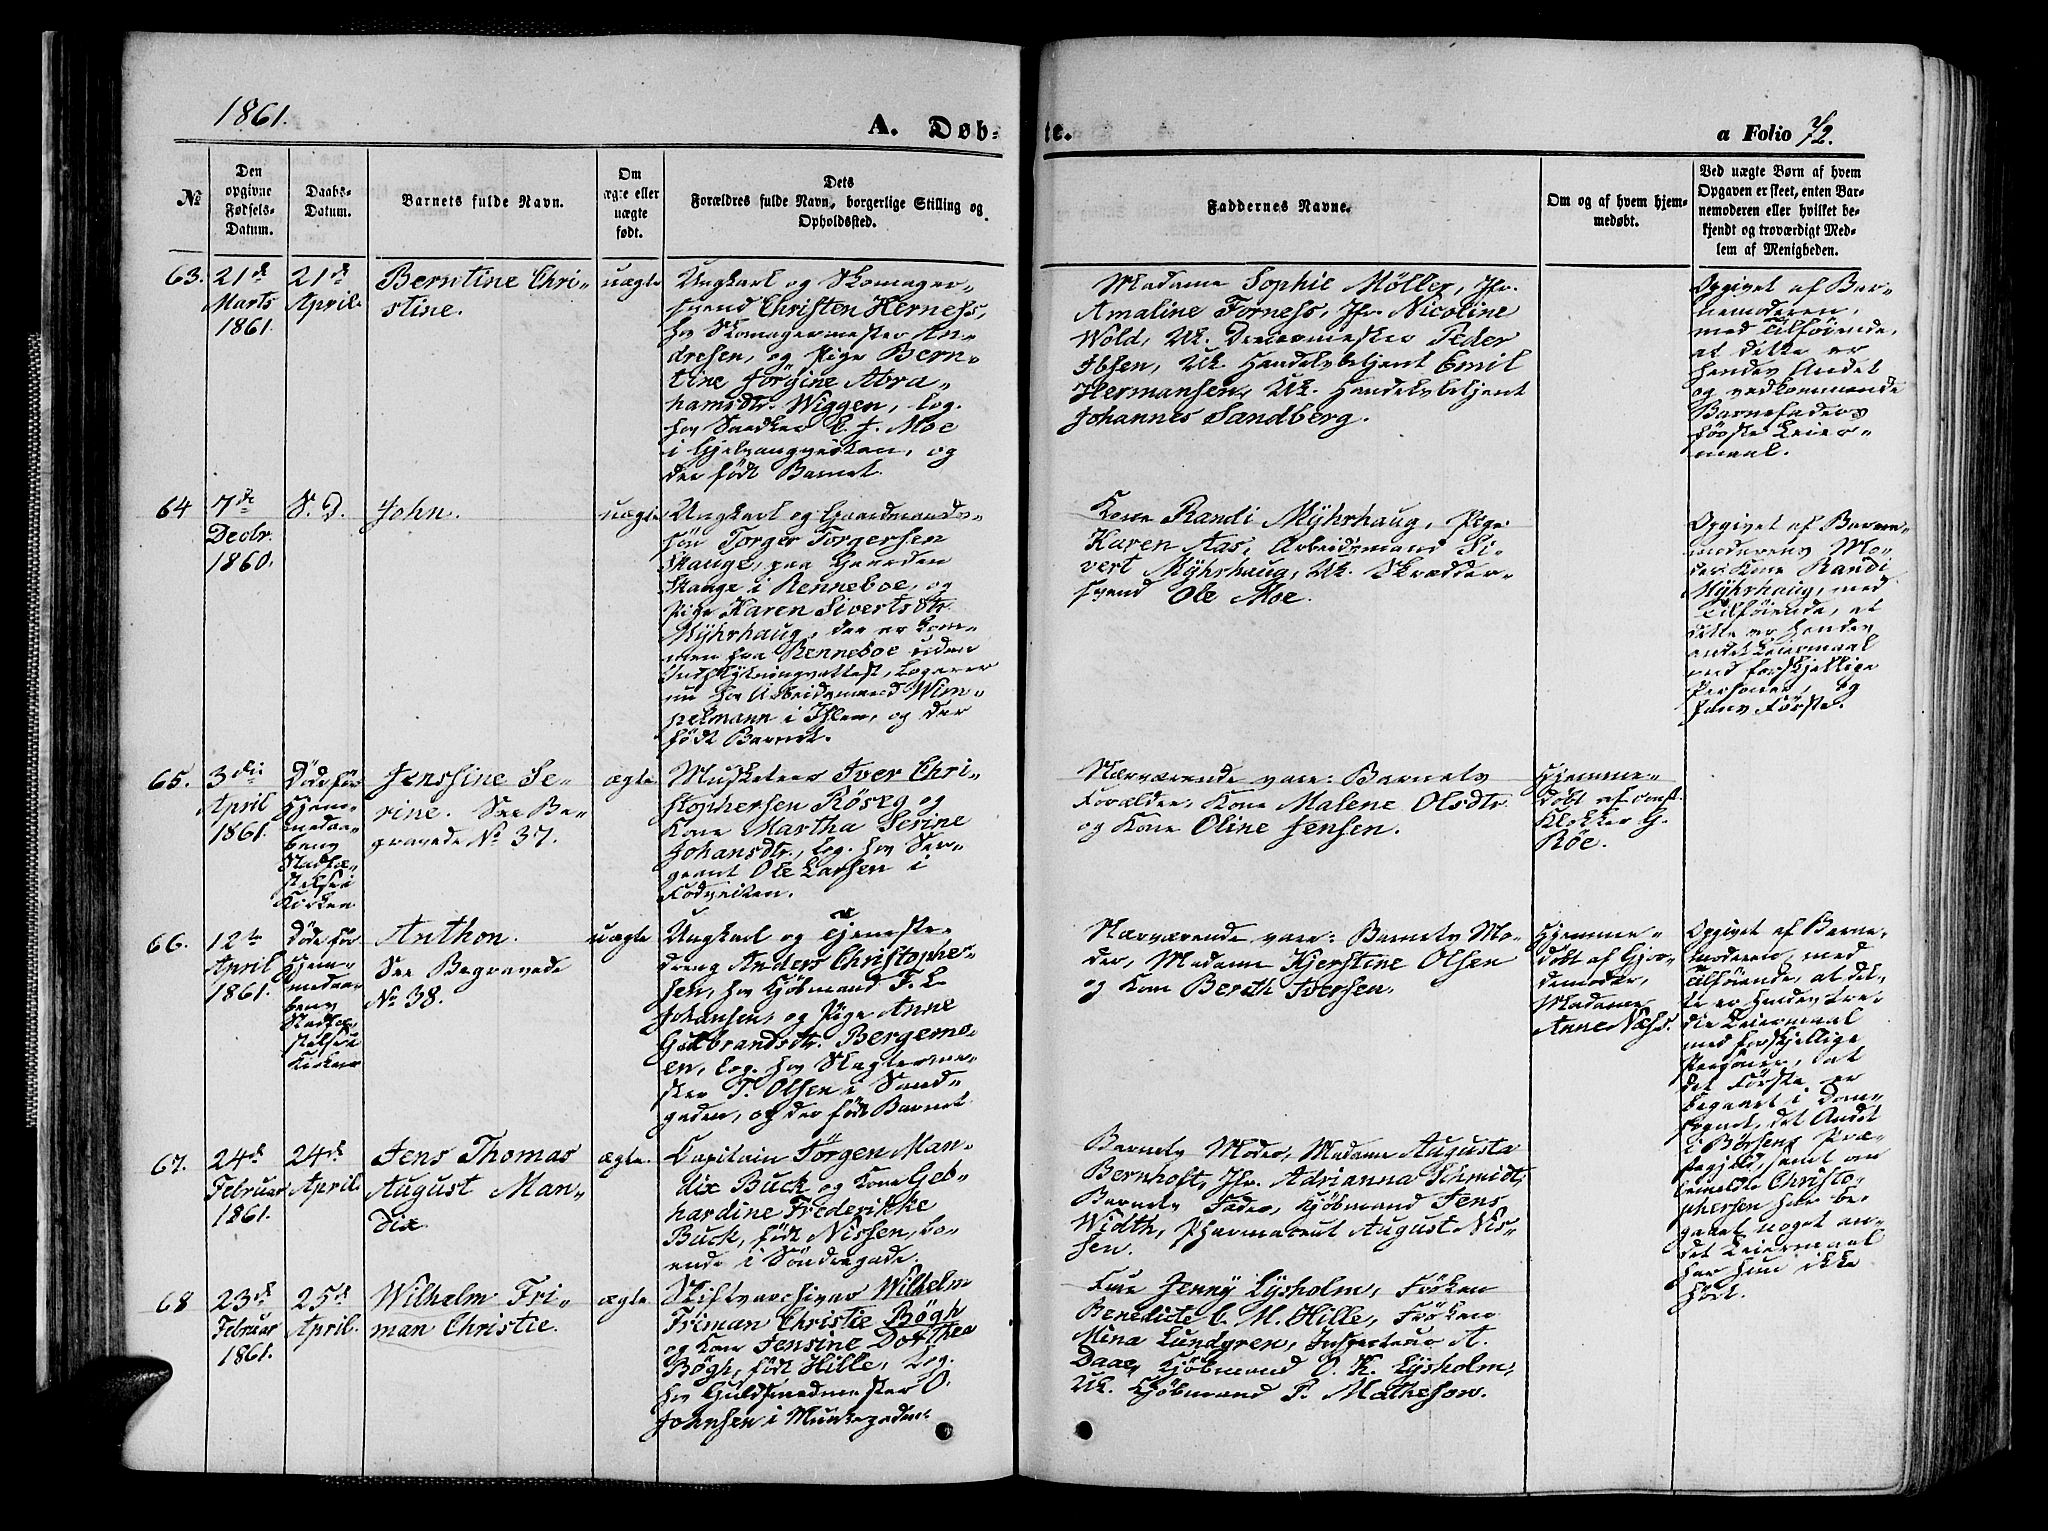 1861.
A. Døb-
te.
a Folio 72.
№
Den
opgivne
Fødsels-
Datum.
Daabs-
Datum.
Barnets fulde Navn.
Om
ægte eller
uægte
født.
Dets
Forældres fulde Navn, borgerlige Stilling og
Opholdssted.
Faddernes Navne.
Om og af hvem hjem-
medøbt.
Ved uægte Børn af hvem
Opgaven er skeet, enten Bar-
nemoderen eller hvilket be-
kjendt og troværdigt Med-
lem af Menigheden.
63.
21de
Marts
1861.
21de
April.
Berntine Chri-
stine.
uægte
Ungkarl og Skomager-
svend Christen Herness,
hos Skomagermester An-
dresen, og Pige Bern-
tine Jörgine Abra-
hamsdtr. Wiggen, log.
hos Snedker C. J. Moe
i
og
der født Barnet.
Madame Sophie Möller, Jfr.
Amaline Forness, Jfr. Nicoline
Wold, Uk. Peder
Ibsen, Uk. Handelsbetjent Emil
Hermansen, Uk. Handelsbetjent
Johannes Sandberg.
Opgivet af Bar-
nemoderen,
med Tilføiende,
at dette er
hendes Andet
og vedkommende
Barnefaders
første Leier-
maal.
64
7de
Decbr.
1860.
S. D.
John.
uægte
Ungkarl og Gaardmands-
søn Torger Torgersen
Skauge, paa Gaarden
Skauge i Renneboe, og
Pige Karen Sivertsdtr.
Myhrhaug, der er kom-
men fra Renneboe uden
Indflytningsattest, logerer
nu hos Arbeidsmand Wim-
pelmann i Ihlen, og der
født Barnet.
Kone Randi Myhrhaug, Pige
Karen Aas, Arbeidsmand Si-
vert Myhrhaug, Uk. Skrædder-
svend Ole Moe.
Opgivet af Barne-
moderens Mo-
der Kone Randi
Myhrhaug, med
Tilføiende, at
dette er hendes
andet Leiermaal
med forskjellige
Personer, og
hans Første.
65.
3die
April
1861.
Død før
Hjem-
medaa-
bens
Stadfæ-
stelse i
Kirken
Jensine Se-
rine. See Be-
gravede No 37.
ægte
Musketeer Iver Chri-
stophersen Röseg og
Kone Martha Serine
Johansdtr., log. hos Ser-
geant Ole Larsen i
Fodveiten.
Nærværende vare: Barnets
Forældre, Kone Malene Olsdtr.
og Kone Oline Jensen.
Hjemme-
døbt af const.
Klokker G.
Röe.
66.
12te
April
1861.
Døde før
Hjem-
medaa-
bens
Stadfæ-
stelse i
Kirken
Anthon.
See Begravede
No 38.
uægte
Ungkarl og Tjeneste-
dreng Anders Christopher-
sen, hos Kjöbmand F. L.
Johansen, og Pige Anne
Gulbrandsdtr. Bergemo-
en, log. hos Slagterme-
ster T. Olsen i Sand-
gaden, og der født Barnet
Nærværende vare: Barnets Mo-
der, Madame Kjerstine Olsen
og Kone Berith Iversen.
Hjemme-
døbt af Gjor-
demoder,
Madame
Anne Næss.
Opgivet af Barne-
moderen, med
Tilføiende, at det-
te er hendes tre-
die Leiermaal
med forskjellige
Personer, at
det Første er
begaaet i Dom-
sognet, det Andet
i Börsens Præ-
stegjeld, samt om
bemeldte Christo-
phersen har be-
gaaet noget an-
det Leiermaal
har hun ikke
hørt.
67.
24de
Februar
1861.
24de
April.
Jens Thomas
August Man-
dix
ægte.
Capitain Jörgen Man-
dix Buck og Kone Geb-
hardine Frederikke
Buck, født Nissen, bo-
ende i Söndregade.
Barnets Moder, Madame Augusta
Bernhoft, Jfr. Adrianna Schmidt,
Barnets Fader, Kjöbmand Jens
Width, Pharmaceut August Nis-
sen.
68
23de
Februar
1861.
25de
April.
Wilhelm Fri-
man Christie.
ægte
Stiftsarchivar Wilhelm
Friman Christie Bögh
og Kone Jensine Dorthea
Bögh, født Hille, log.
hos Guldsmedmester O.
Johnsen i Munkegaden.
Frue Jenny Lysholm, Frøken
Benedicte C. M. Hille, Frøken
Mina Lundgren, Inspecteur A.
Daae, Kjöbmand O. K. Lysholm,
Uk. Kjöbmand P. Matheson.